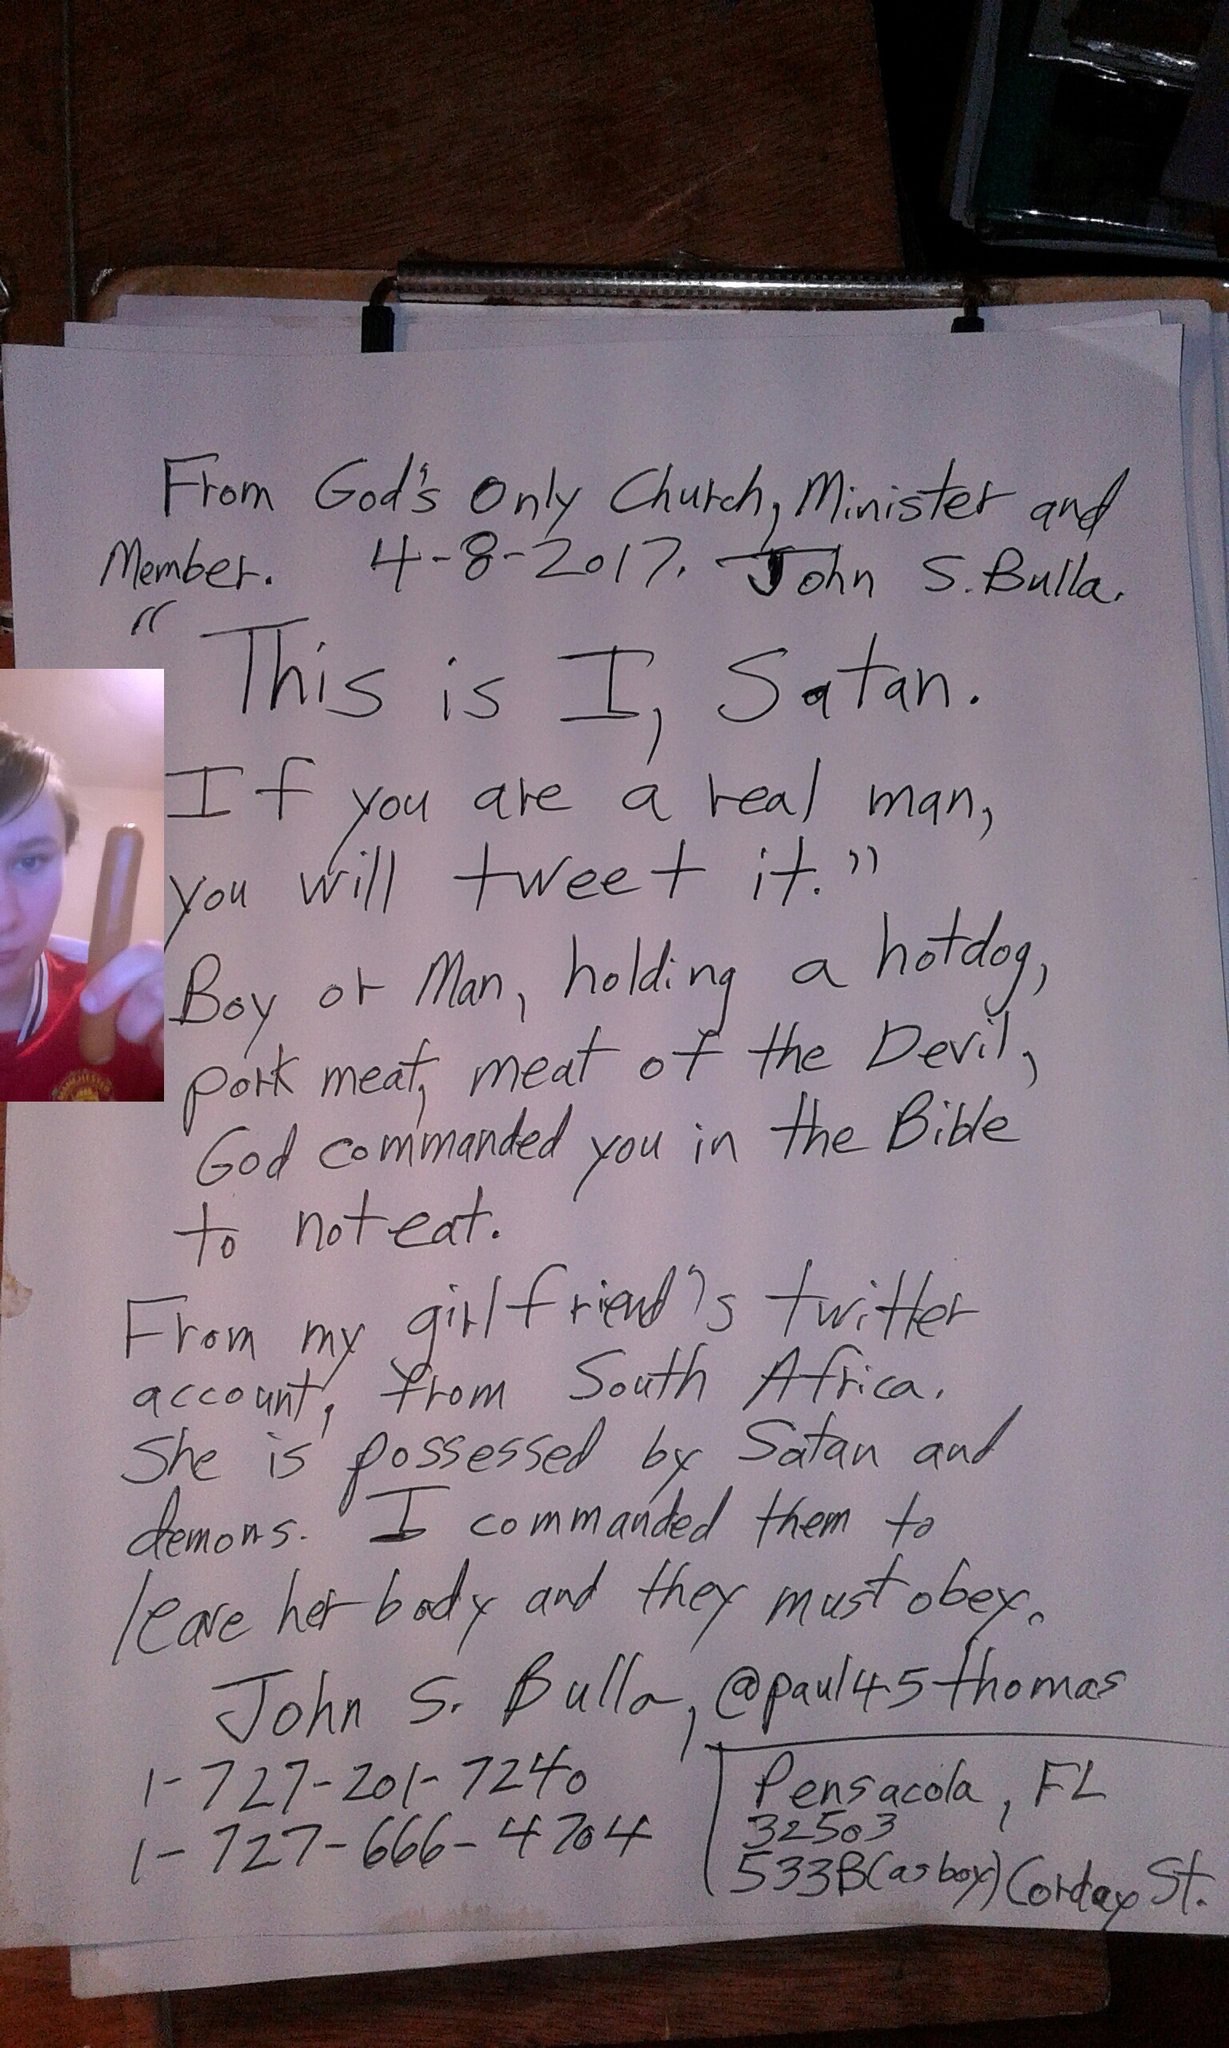 From God's Only Church, Minister and
Member. 4-8-2017. John S. Bulla.
"This is I, Satan.
If you are a real man,
you will tweet it."
Boy or Man, holding a hotdog,
pork meat, meat of the Devil,
God commanded you in the Bible
to not eat.
From my girlfriend's twitter
account, from South Africa.
She is possessed by Satan and
demons. I commanded them to
leave her body and they must obey.
John S. Bulla, @paul45thomas
1-727-201-7240
1-727-666-4704
Pensacola, FL
32503
533B(as boy) Corday St.
MANCHESTER